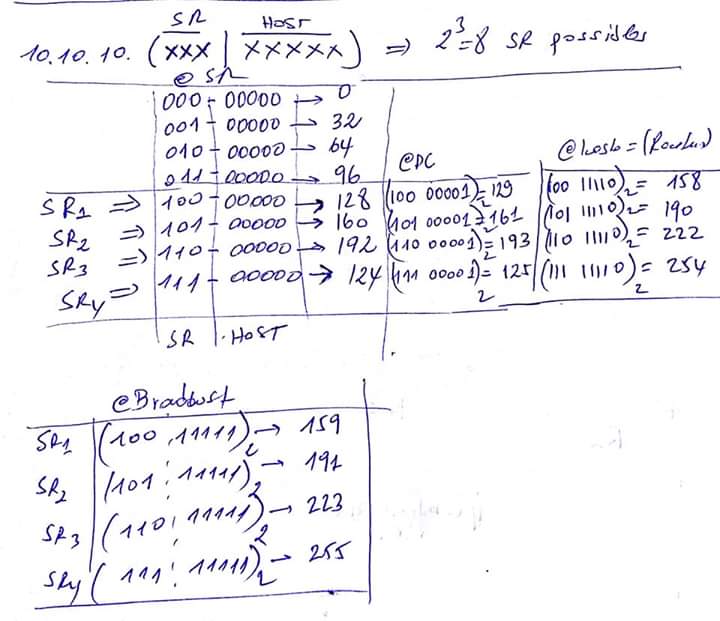 SR HOST
10.10.10. (xxx | xxxxx) => 2³=8 SR possibles
@ SR
000 - 00000 → 0
001 - 00000 → 32
010 - 00000 → 64
011 - 00000 → 96
@PC @hosts = (Routeur)
SR1 => 100 - 00000 → 128 (100 00001)2 = 129 (100 11110)2 = 158
SR2 => 101 - 00000 → 160 (101 00001)2 = 161 (101 11110)2 = 190
SR3 => 110 - 00000 → 192 (110 00001)2 = 193 (110 11110)2 = 222
SR4 => 111 - 00000 → 124 (111 00001)2 = 125 (111 11110)2 = 254
SR HOST
@Bradbust
SR1 (100 , 11111)2 → 159
SR2 (101 ; 11111)2 → 191
SR3 (110 ; 11111)2 → 223
SR4 (111 ; 11111)2 → 255